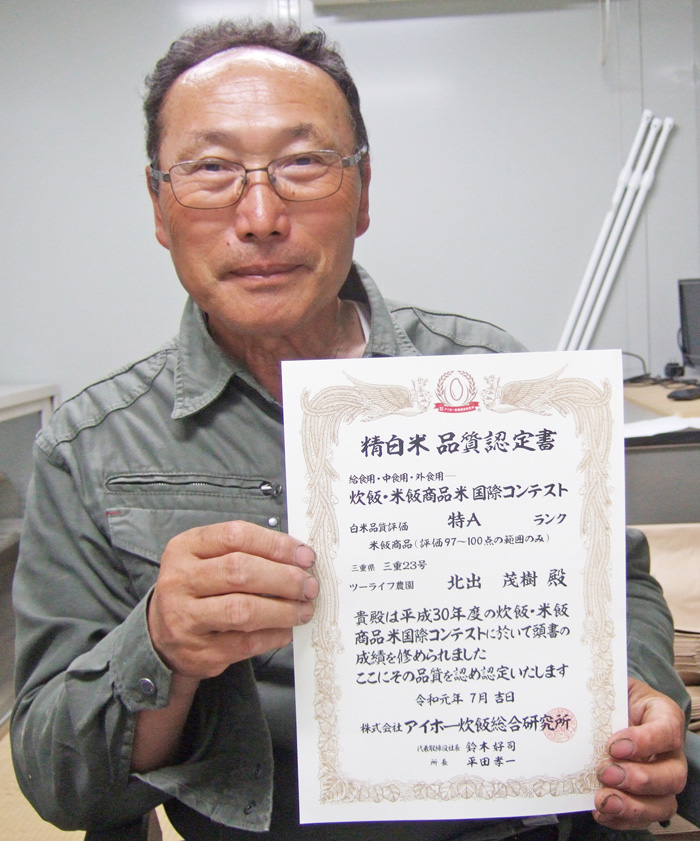 精白米 品質認定書
給食用・中食用・外食用―
炊飯・米飯商品米 国際コンテスト
白米品質評価 特A ランク
米飯商品(評価97〜100点の範囲のみ)
三重県 三重23号
ツーライフ農園 北出 茂樹 殿
貴殿は平成30年度の炊飯・米飯
商品米国際コンテストに於いて頭書の
成績を修められました
ここにその品質を認め認定いたします
令和元年 7月 吉日
株式会社 アイホー炊飯総合研究所
代表取締役社長 鈴木好司
所長 平田孝一